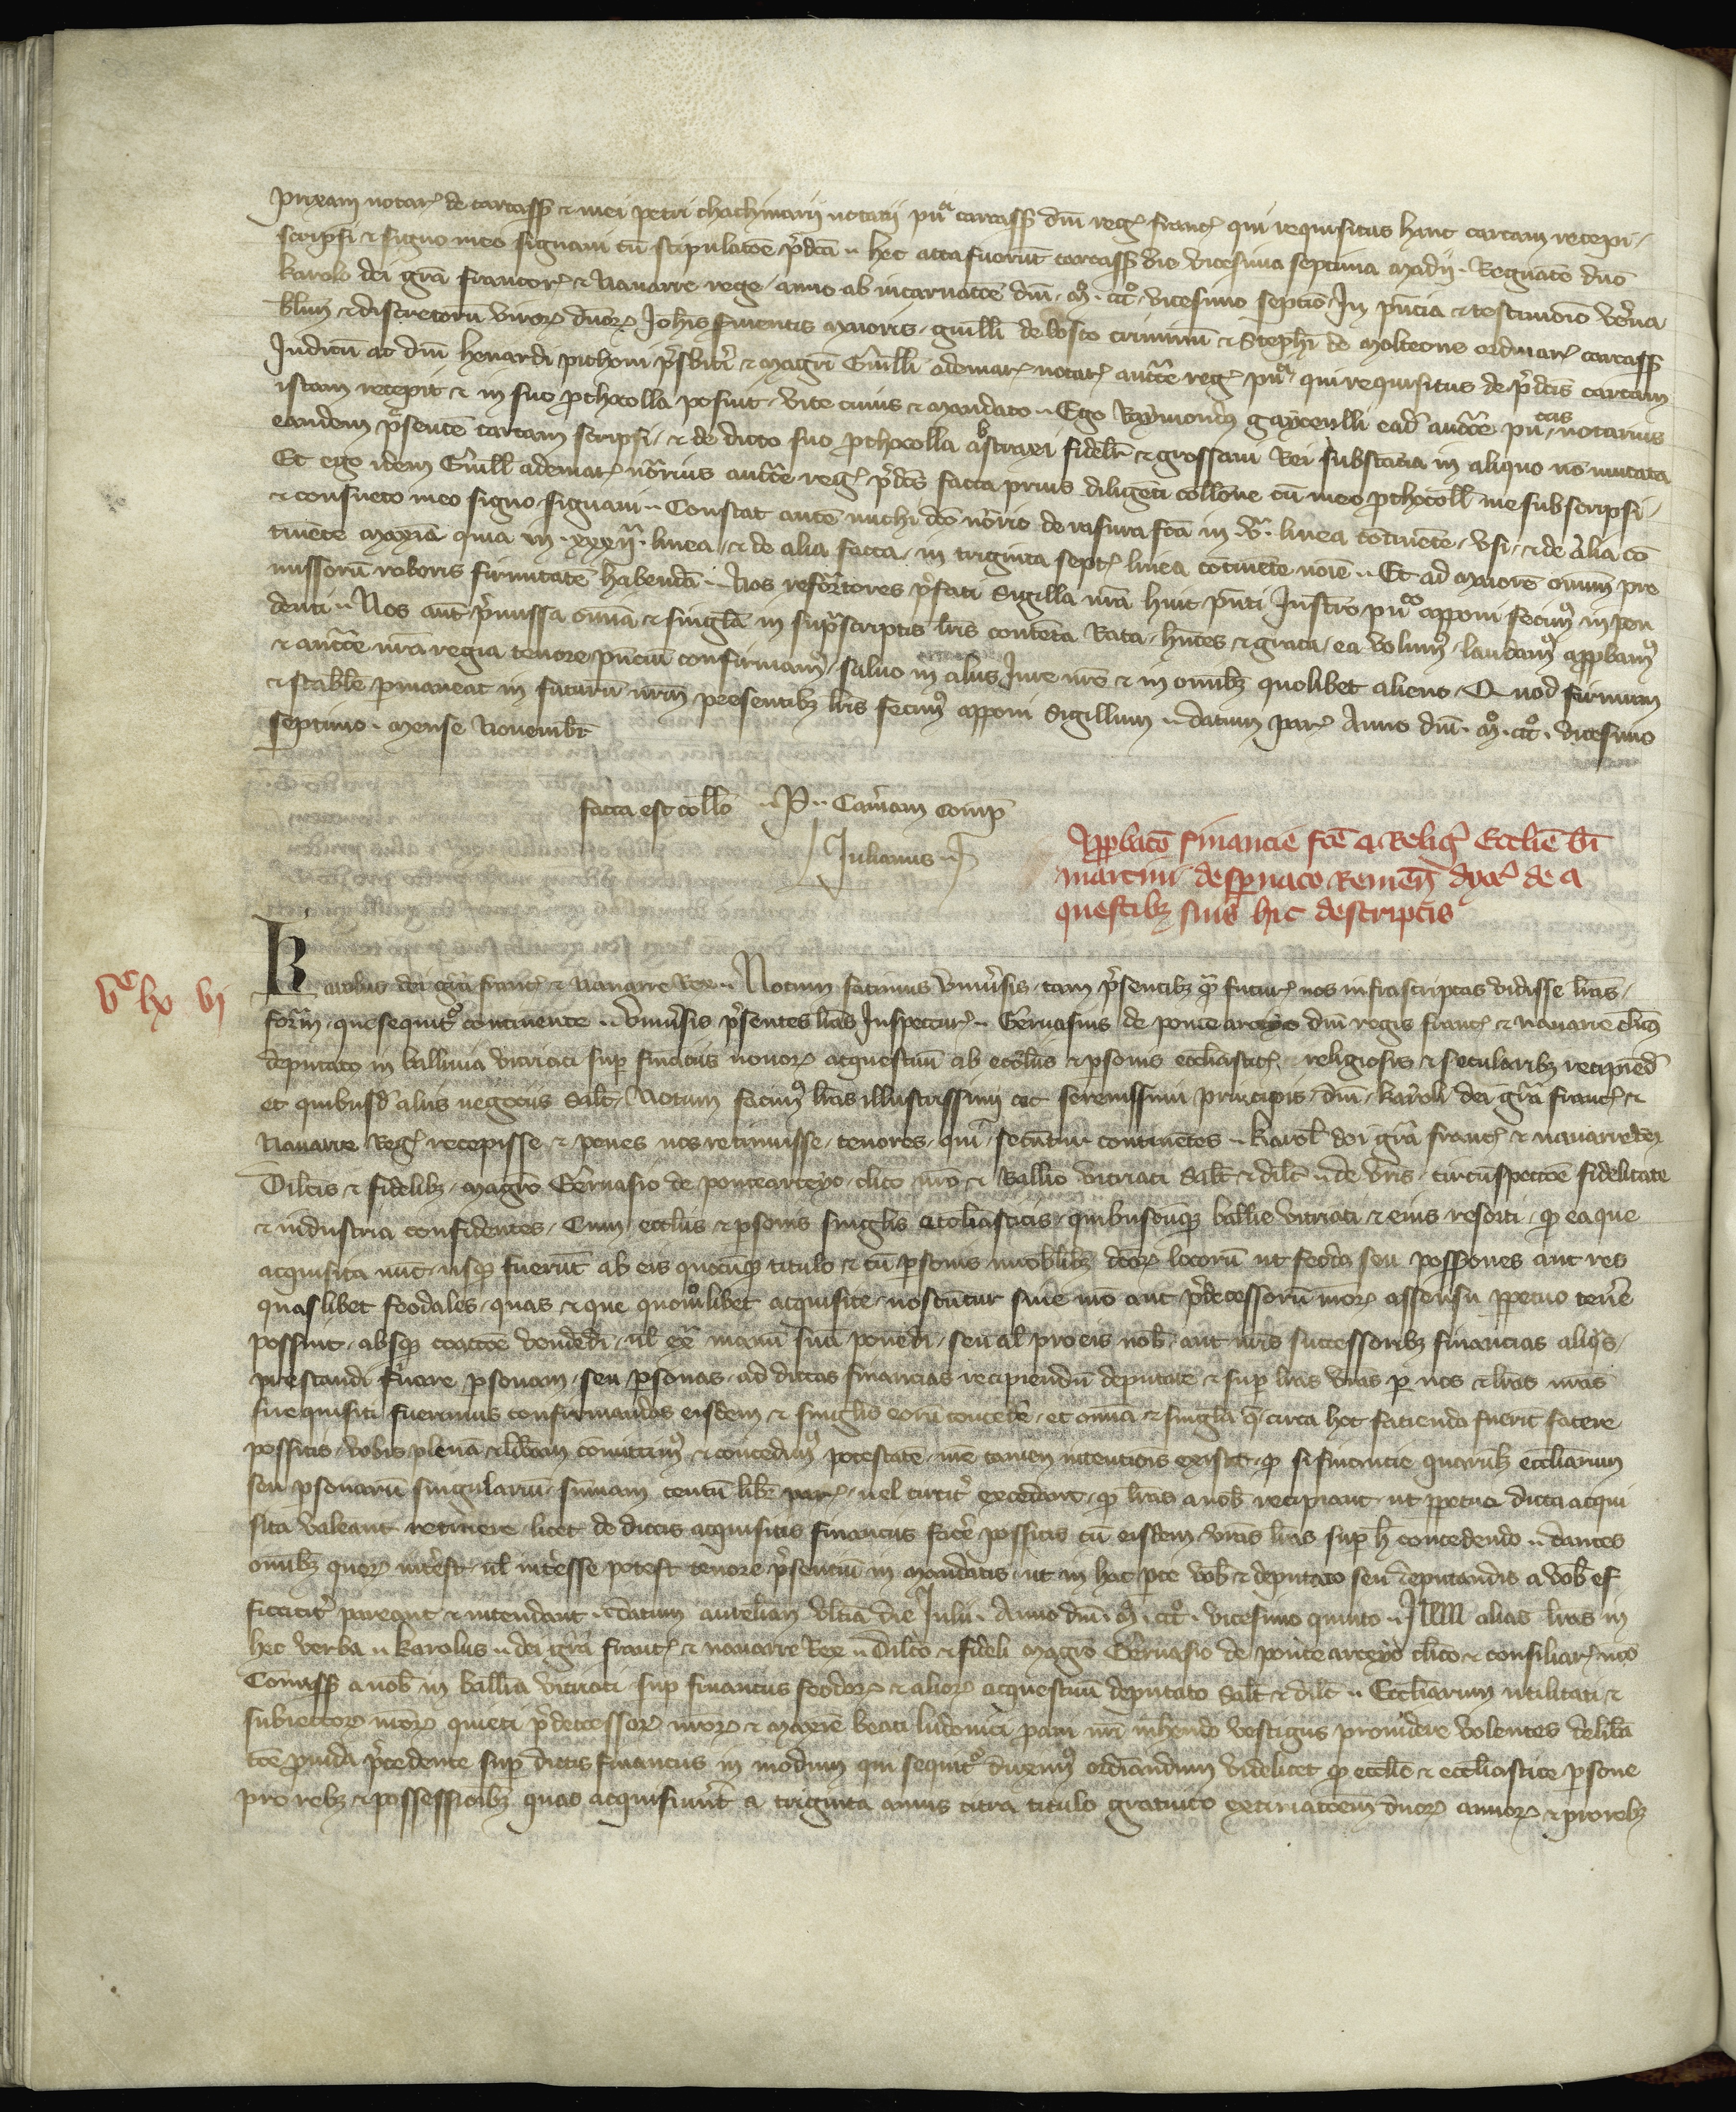 prixani notar de carcass & mei petri chachmarii notarii pu͡a carcass dni reg franc qui requisitus hanc cartam recepi
scripsi & signo meo signavi cu stipulatoe p̃dca .. hec acta fuerut carcass die vicesima septima madii . Regnate dno
karolo dei gra francor & Navarre rege / anno ab incarnatoe dni . m̊ . ccc̊ . vicesimo septio . In pn̄cia & testimonio ven̄a
bliu & discretoru viror dn̄or Johis maioris . guilli de bosco criminu & Stephi de molceone ordinar carcass
Judicu ac dni henardi pithoni p̃sbiti & magri Guilli ademar notar auctte reg pu͡a . qui requisitus de p̃dcis cartam
istam recepit & in suo pthocollo posuit . vice cuius & mandato .. Ego Raymondus gaycenlli ead auctte pu notarius
eandem p̃sente cartam scripsi / & de dicto suo pthocollo abstraxi fidelr & grossavi Rei substatia in aliquo no mutata
Et ego idem Guill ademar notrius auctte reg p̃dcis facta prius diligeti collone cu meo pthocoll me subscripsi /
& consueto meo signo signavi .. Constat aute michi dco notrio de rasura fca in .v. linea cotinete . usi . & de alia co
tinete maxia quia in .xxxij. linea . & de alia facta in triginta sept linea cotinete noie .. Et ad maiore oniu pre
missoru roboris firmitate habenda .. Nos reformatores p̃fati sigilla nra huic pn̄ti Instro puco apponi fecim9 in pen
denti .. Nos aut p̃missa omia & singla in sup̃scriptis lris conteta Rata . hn̄tes & grata . ea volum9 . laudam9 appbam9
& auctte nra regia tenore pn̄ciu confirmam9 . salvo in aliis Jure nro & in omib3 quolibet alieno . Quod firmum
& stabile pmaneat in futuru nrm presentib3 lris fecim9 apponi Sigillum .. datum par Anno dni . m̊ . ccc̊ . vicesimo
septimo . mense Novembr
facta est collo .. P .. Cam̃am comp̃
Julianus ..
Appbaco financie fce a Relig̃ Ecclie bi
martini de sparnaco Remen̄ dyoc de a
questib3 suis hic descriptis
vᶜ lx vj
Karolus dei gra franc & Navarre Rex .. Notum facimus universis . tam p̃sentib3 q̃ futur nos infrascriptas vidisse lras /
form . que sequit̃ continente .. Universis p̃sentes lras Inspectur .. Gervasius de ponte arceyo dni regis franc & navarre clic9
deputato in ballivia vitriaci sup financiis novor acquestuu ab ecclesiis & psonis ecclasticis religiosis & secularib3 recipied
et quibusd aliis negociis salt . Notum facim9 lras illustrissimi ac serenissimi principis . dni . karoli dei gra franc &
Navarre Reg recepisse & penes nos retinuisse . tenores . qui secuntur continetes .. karol dei gra franc & navarre Rex
Dilcis & fidelib3 . magro Gervasio de pontearceyo . clico nro & Ballivo vitriaci Salt & dilc .. de vris . circuspectoe fidelitate
& industria confidentes . Cum eccliis & psonis singlis ecclesiasticis . quibuscuq ballivie vitriaci & eius resorti . q ea que
acquisita nuc usq fuerut ab eis quocuq titulo & cu psonis inobilib3 dcor locoru ut feoda seu possones aut res
quas libet feodales . quas & que quomolibet acquisite noscutur sine nro aut p̃decessoru nror assensu ppetuo tenere
possint . absq coactoe vendedi . ul ext manu sua ponedi . seu al pro eis nob . aut nris successorib3 financias aliqs .
prestandi finare . psonam . seu psonas . ad dictas financias recipiendu deputate & sup lras vras p nos & lras nras
si requisiti fuerimus confirmandas eisdem & singlis eoru concede . et omia & singla q̃ circa hoc facienda fuerit facere
possitis . vobis plena & libam comittim9 & concedim9 potestate . nre tamen intentiois existit . q si financie quarulib3 eccliarum
seu psonaru singulariu . sumam centu libr par . vel circit excedere . q lras a nob recipiant . ut ppetuo dicta acqui
sita valeant retinere . licet de dictis acquisitis financias face possitis cu eisdem vras lras sup h concedendo .. dantes
omib3 quor intest . ul interesse potest tenore p̃sentiu in mandatis . ut in hac pte vob & deputato seu deputandis a vob ef
ficacit pareant & intendant .. datum aurelian ultia die Julii . Anno dni . m̊ . ccc̊ . vicesimo quinto .. Item alias lras in
hec verba .. karolus .. dei gra franc & navarre Rex .. dilco & fideli magro Gervasio de ponte arceyo clico & consiliar nro
Comiss a nob in ballia vitriaci sup financiis feodor & alior acquestuu deputato Salt & dilc .. Eccliarum utilitati &
subiector nror quieti p̃decessor nror & maxie beati ludovici pavi nri inhendo vestigiis providere volentes delib̃a
toe p̃vida p̃cedente sup dictis financiis in modum qui sequit̃ duxim9 ordiandum videlicet q ecclie & ecclastice psone
pro reb3 & possessioib3 quas acquisiunt a triginta annis citra titulo gratuito extimatoem duor annor & pro reb3